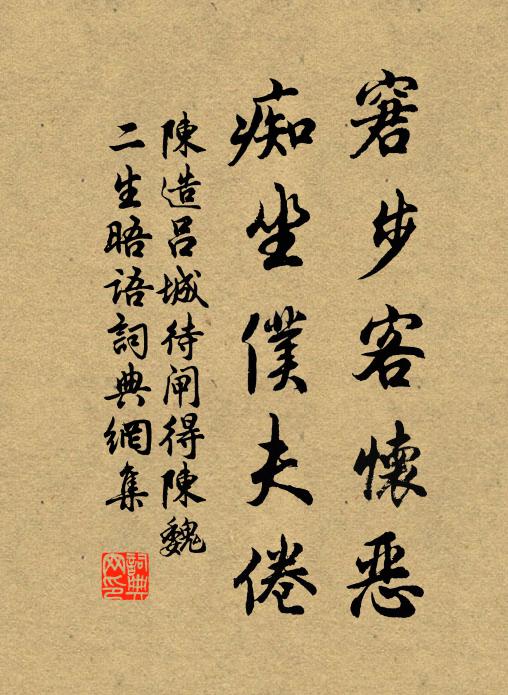 窘步客懷惡
痴坐僕夫倦
陳造呂城待閘得陳魏
二生晤語詞典網集
詞典網印